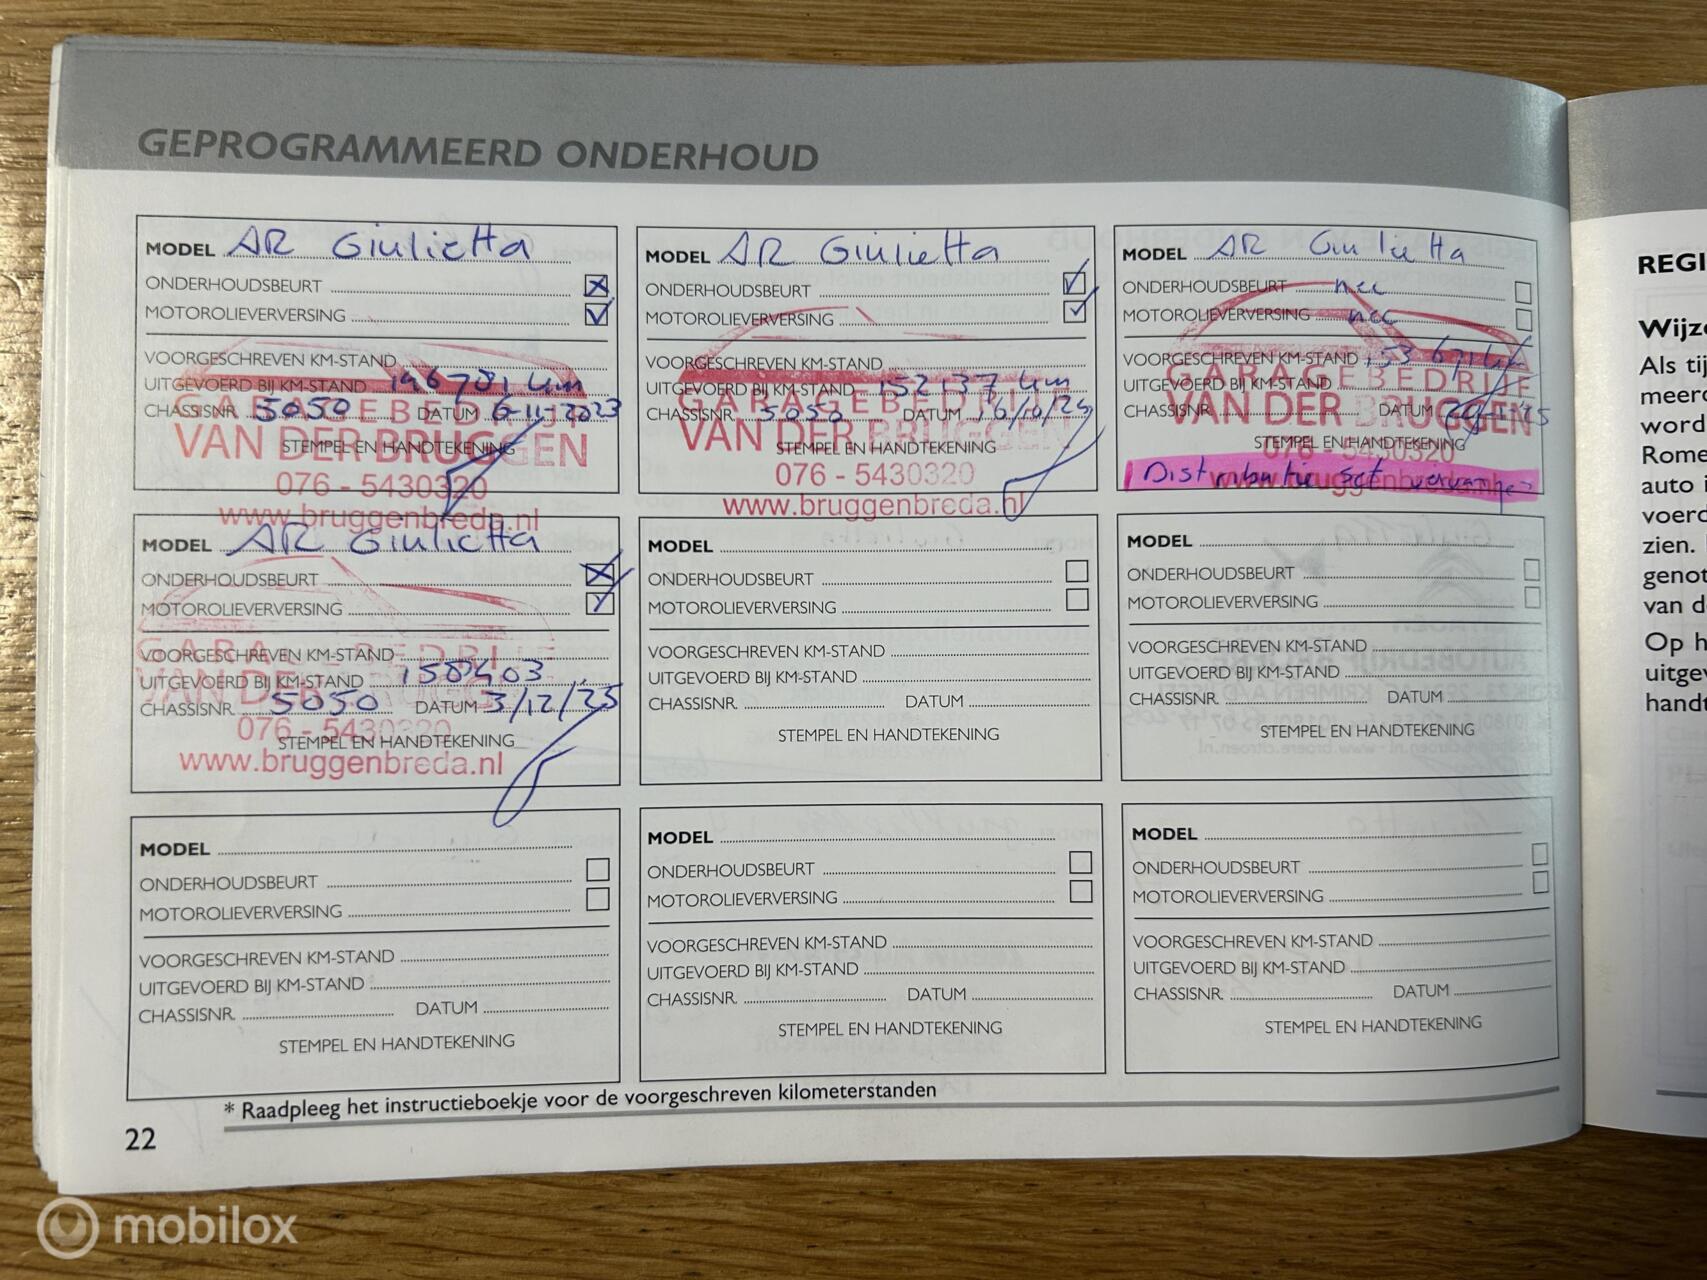 GEPROGRAMMEERD ONDERHOUD
MODEL AR Giulietta
ONDERHOUDSBEURT
MOTOROLIEVERVERSING
VOORGESCHREVEN KM-STAND
UITGEVOERD BIJ KM-STAND km
CHASSISNR. 5050 DATUM 6-11-2023
STEMPEL EN HANDTEKENING
GARAGEBEDRIJF
VAN DER BRUGGEN
076 - 5430320
www.bruggenbreda.nl
MODEL AR Giulietta
ONDERHOUDSBEURT
MOTOROLIEVERVERSING
VOORGESCHREVEN KM-STAND
UITGEVOERD BIJ KM-STAND 152137 km
CHASSISNR. 5050 DATUM
STEMPEL EN HANDTEKENING
GARAGEBEDRIJF
VAN DER BRUGGEN
076 - 5430320
www.bruggenbreda.nl
MODEL AR Giulietta
ONDERHOUDSBEURT nee
MOTOROLIEVERVERSING nee
VOORGESCHREVEN KM-STAND 153 671 km
UITGEVOERD BIJ KM-STAND
CHASSISNR. DATUM
STEMPEL EN HANDTEKENING
GARAGEBEDRIJF
VAN DER BRUGGEN
076 - 5430320
www.bruggenbreda.nl
Distributie set vervangen
MODEL AR Giulietta
ONDERHOUDSBEURT
MOTOROLIEVERVERSING
VOORGESCHREVEN KM-STAND
UITGEVOERD BIJ KM-STAND 158403
CHASSISNR. 5050 DATUM 3/12/25
STEMPEL EN HANDTEKENING
GARAGEBEDRIJF
VAN DER
076 - 5430320
www.bruggenbreda.nl
MODEL
ONDERHOUDSBEURT
MOTOROLIEVERVERSING
VOORGESCHREVEN KM-STAND
UITGEVOERD BIJ KM-STAND
CHASSISNR. DATUM
STEMPEL EN HANDTEKENING
MODEL
ONDERHOUDSBEURT
MOTOROLIEVERVERSING
VOORGESCHREVEN KM-STAND
UITGEVOERD BIJ KM-STAND
CHASSISNR. DATUM
STEMPEL EN HANDTEKENING
MODEL
ONDERHOUDSBEURT
MOTOROLIEVERVERSING
VOORGESCHREVEN KM-STAND
UITGEVOERD BIJ KM-STAND
CHASSISNR. DATUM
STEMPEL EN HANDTEKENING
MODEL
ONDERHOUDSBEURT
MOTOROLIEVERVERSING
VOORGESCHREVEN KM-STAND
UITGEVOERD BIJ KM-STAND
CHASSISNR. DATUM
STEMPEL EN HANDTEKENING
MODEL
ONDERHOUDSBEURT
MOTOROLIEVERVERSING
VOORGESCHREVEN KM-STAND
UITGEVOERD BIJ KM-STAND
CHASSISNR. DATUM
STEMPEL EN HANDTEKENING
* Raadpleeg het instructieboekje voor de voorgeschreven kilometerstanden
22
REGI
Wijz
Als tij
meer
word
Rome
auto i
voerd
zien.
genot
van d
Op h
uitge
handt
mobilox